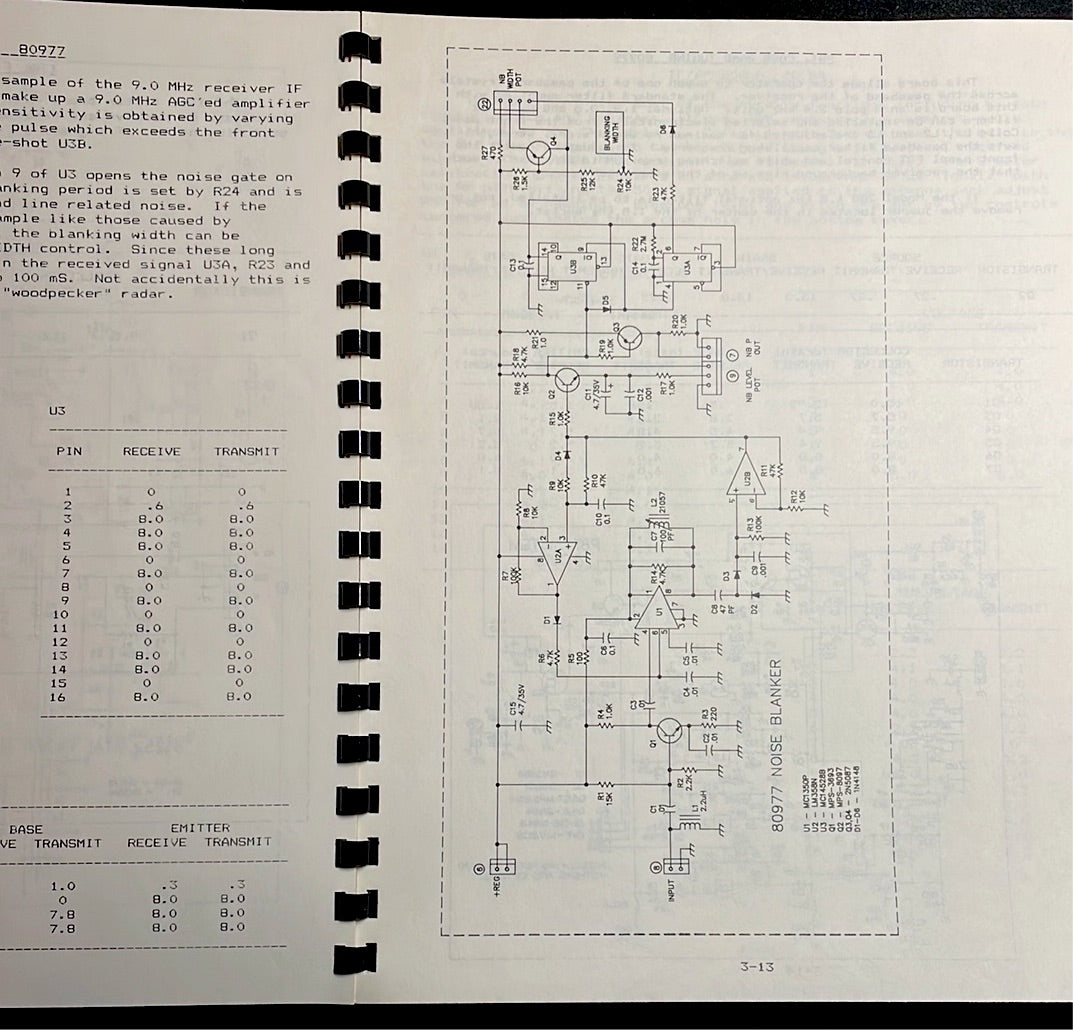 80977
sample of the 9.0 MHz receiver IF
make up a 9.0 MHz AGC'ed amplifier
ensitivity is obtained by varying
pulse which exceeds the front
e-shot U3B.
9 of U3 opens the noise gate on
anking period is set by R24 and is
nd line related noise. If the
ample like those caused by
the blanking width can be
IDTH control. Since these long
n the received signal U3A, R23 and
100 mS. Not accidentally this is
"woodpecker" radar.
U3
PIN RECEIVE TRANSMIT
1 0 0
2 .6 .6
3 8.0 8.0
4 8.0 8.0
5 8.0 8.0
6 0 0
7 8.0 8.0
8 0 0
9 8.0 8.0
10 0 0
11 8.0 8.0
12 0 0
13 8.0 8.0
14 8.0 8.0
15 0 0
16 8.0 8.0
BASE EMITTER
VE TRANSMIT RECEIVE TRANSMIT
1.0 .3 .3
0 8.0 8.0
7.8 8.0 8.0
7.8 8.0 8.0
22
NB
WIDTH
POT
R27
470
Q4
R26
1.5K
R25
12K
R24
10K
BLANKING
WIDTH
D6
R23
47K
C13
0.1
14
10
Q
9
Q
U3B
15
12
11
13
R22
2.7M
C14
0.1
2
6
Q
7
Q
U3A
1
4
5
3
D5
R21
1.0
Q3
R20
1.0K
R19
1.0K
R18
4.7K
R16
10K
Q2
C11
4.7/35V
+
C12
.001
R17
1.0K
7
NB P
OUT
9
NB LEVEL
POT
R15
1.0K
D4
R9
10K
R10
47K
C10
0.1
R8
10K
R7
100K
8
2
3
4
1
U2A
D1
R6
4.7K
R5
100
C6
0.1
U1
R14
4.7K
C7
100
PF
L2
21057
C8
47
PF
D3
D2
C9
.001
R13
100K
5
6
7
U2B
R11
47K
R12
10K
C5
.01
C4
.01
C3
.01
C15
4.7/35V
R4
1.0K
Q1
R3
220
C2
.01
R2
2.2K
R1
15K
C1
.01
L1
2.2uH
6
+REG
8
INPUT
80977 NOISE BLANKER
U1 - MC1350P
U2 - LM358N
U3 - MC14528B
Q1 - MPS-3693
Q2 - MPS-8097
Q3,Q4 - 2N5087
D1-D6 - 1N4148
3-13